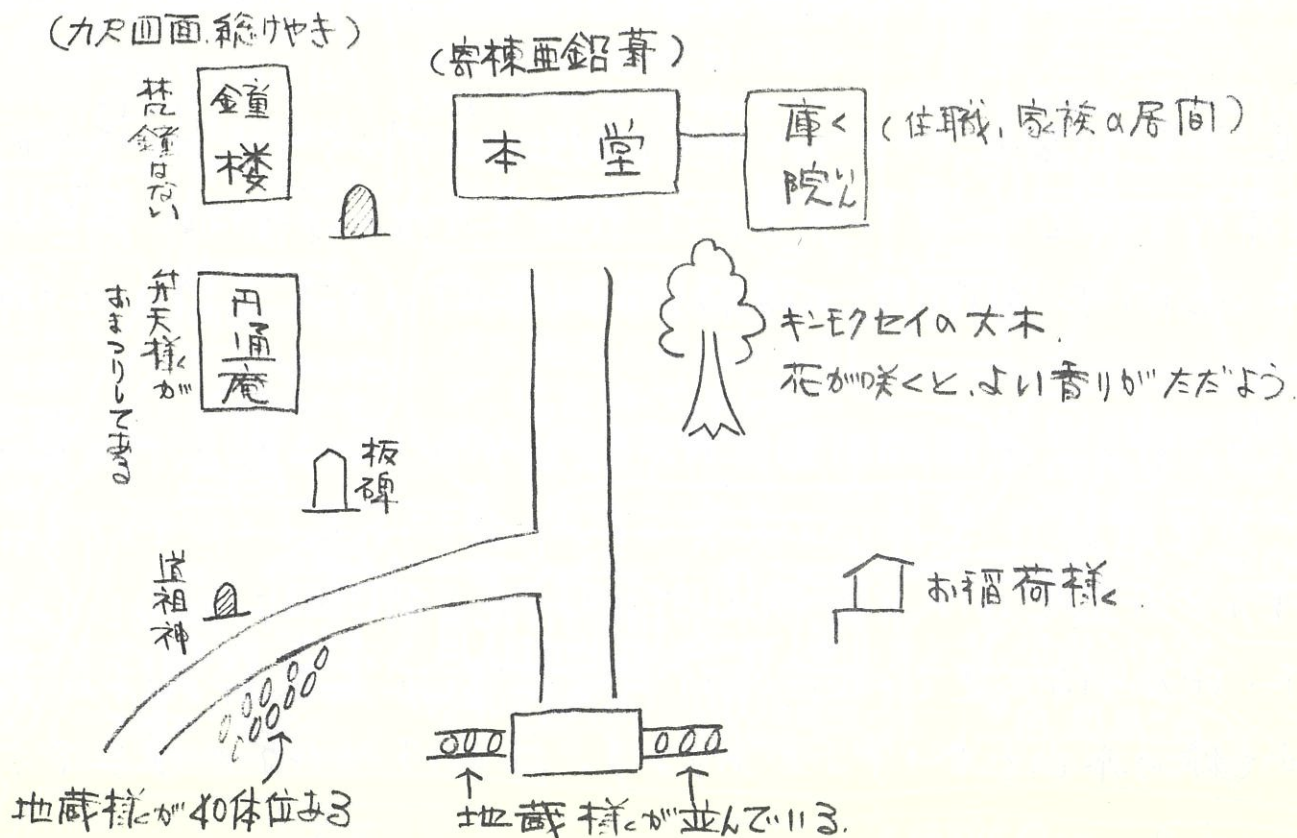 (九尺四面.総けやき)
鐘楼
梵鐘はない
(寄棟亜鉛葺)
本堂
庫く
院いん
(住職、家族の居間)
円通庵
弁天様が
おまつりしてある
キンモクセイの大木.
花が咲くと、よい香りがただよう.
板碑
道祖神
お稲荷様.
地蔵様が40体位ある
地蔵様が並んでいる.